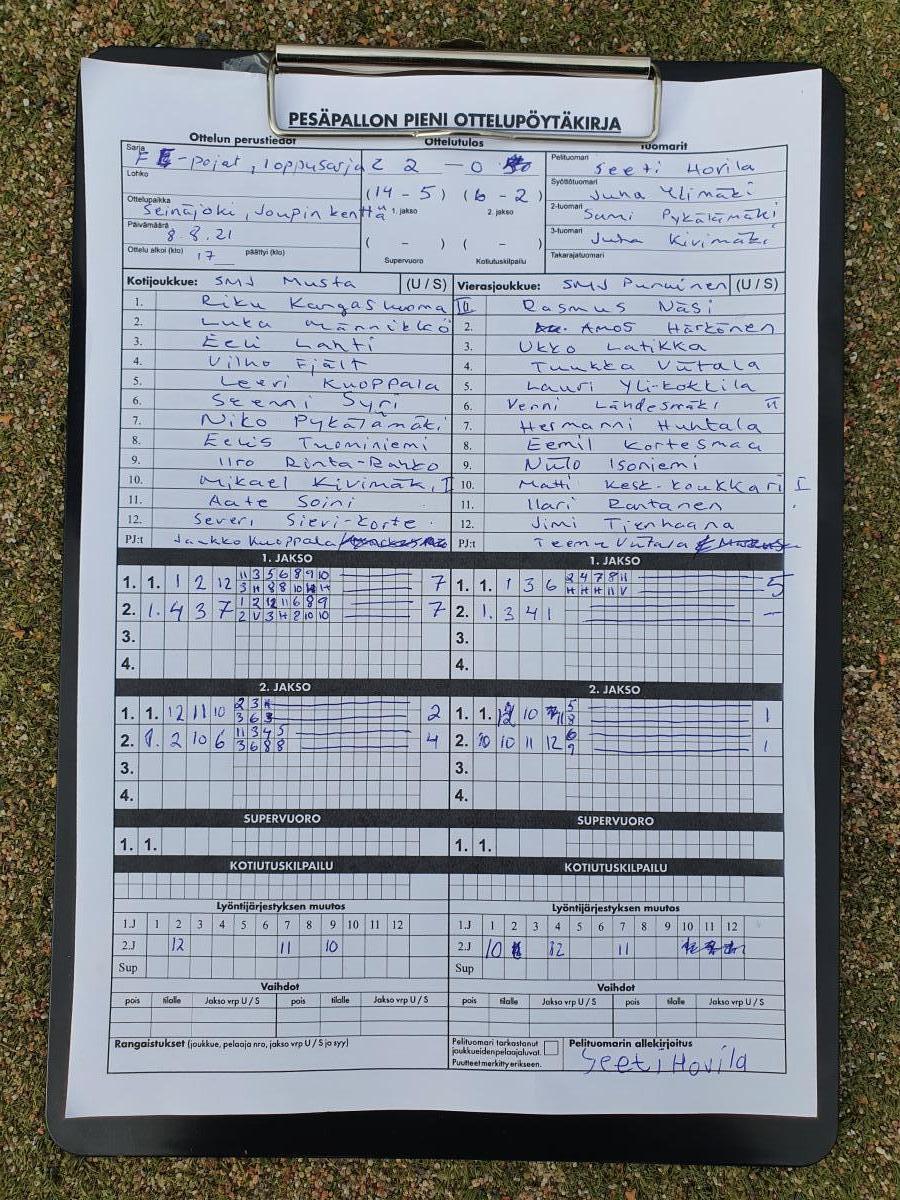 PESÄPALLON PIENI OTTELUPÖYTÄKIRJA
Ottelun perustiedot Ottelutulos Tuomarit
Sarja F -pojat, loppusarja 2 2 - 0
Lohko
Ottelupaikka Seinäjoki, Joupin kenttä
Päivämäärä 8.8.21
Ottelu alkoi (klo) 17 päättyi (klo)
(14 - 5) (6 - 2)
1. jakso 2. jakso
( - ) ( - )
Supervuoro Kotiutuskilpailu
Pelituomari Seeti Hovila
Syöttötuomari Juha Ylimäki
2-tuomari Sami Pykälämäki
3-tuomari Juha Kivimäki
Takarajatuomari
Kotijoukkue: SMJ Musta (U / S) Vierasjoukkue: SMJ Punainen (U / S)
1. Riku Kangasluoma II Rasmus Näsi
2. Luka Männikkö 2. Amos Härkönen
3. Eeli Lahti 3. Ukko Latikka
4. Vilho Fjält 4. Tuukka Viitala
5. Leevi Kuoppala 5. Lauri Yli-Kokkila
6. Seemi Syri 6. Venni Lähdesmäki II
7. Niko Pykälämäki 7. Hermanni Huhtala
8. Eelis Tuominiemi 8. Eemil Kortesmaa
9. Iiro Rinta-Rahko 9. Niilo Isoniemi
10. Mikael Kivimäki I 10. Matti Kesk-Koukkari I
11. Aate Soini 11. Ilari Rantanen
12. Severi Sievi-Korte 12. Jimi Tienhaara
PJ:t Jaakko Kuoppala PJ:t Teemu Viitala
1. JAKSO 1. JAKSO
1. 1. 1 2 12 11 3 5 6 8 9 10 7 1. 1. 1 3 6 2 4 7 8 11 5
3 H 8 8 10 H H H H 11 V
2. 1. 4 3 7 1 2 12 11 6 8 9 7 2. 1. 3 4 1 —
2 V 3 H 8 10 10
3. 3.
4. 4.
2. JAKSO 2. JAKSO
1. 1. 12 11 10 2 3 2 1. 1. 12 10 11 5 1
3 6 8
2. 1. 2 10 6 11 3 4 5 4 2. 10 10 11 12 6 1
3 6 8 8 9
3. 3.
4. 4.
SUPERVUORO SUPERVUORO
1. 1. 1. 1.
KOTIUTUSKILPAILU KOTIUTUSKILPAILU
Lyöntijärjestyksen muutos Lyöntijärjestyksen muutos
1.J 1 2 3 4 5 6 7 8 9 10 11 12 1.J 1 2 3 4 5 6 7 8 9 10 11 12
2.J 12 11 10 2.J 10 12 11
Sup Sup
Vaihdot Vaihdot
pois tilalle Jakso vrp U / S pois tilalle Jakso vrp U / S pois tilalle Jakso vrp U / S pois tilalle Jakso vrp U / S
Rangaistukset (joukkue, pelaaja nro, jakso vrp U / S ja syy)
Pelituomari tarkastanut joukkueiden pelaajaluvat.
Puutteet merkitty erikseen.
Pelituomarin allekirjoitus
Seeti Hovila